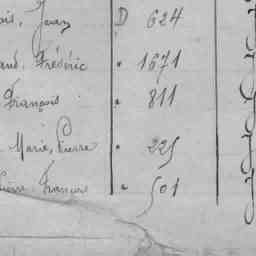 ois, Jean D 624
aud, Frédéric " 1671
François " 811
Marie, Pierre " 225
Pierre François " 501